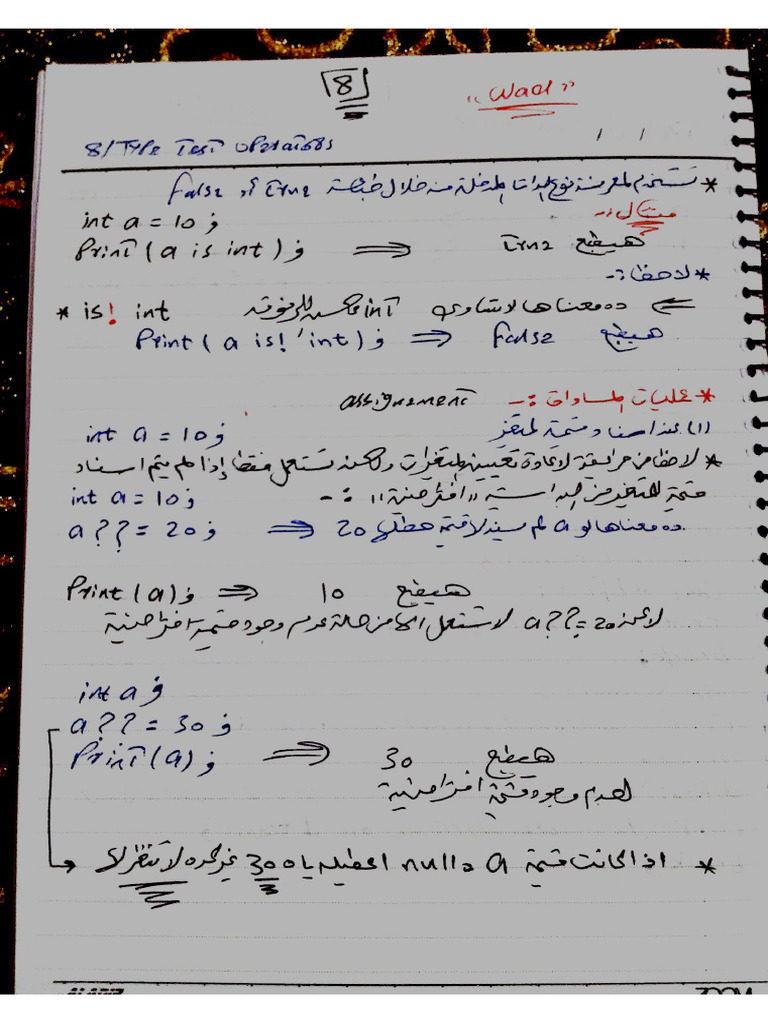 8
"Wael"
8/Type Test operators
/ /
* تستخدم لمعرفة نوع البيانات المدخلة من خلال طباعة true أو false
مثال :-
int a = 10 ;
Print ( a is int ) ; ⇒ هيطبع true
* لاحظ :-
* is! int ده معناها لا تساوى int عكس اللى فوقه ⇐
Print ( a is! int ) ; ⇒ false هيطبع
* عمليات المساواة :- assignment
(1) عند اسناد قيمة لمتغير int a = 10 ;
* لاحظ من مراجعة لاعادة تعيين المتغيرات ولكن تستعمل فقط إذا لم يتم اسناد
قيمة للمتغير من البداية "افتراضية" :- int a = 10 ;
a ??= 20 ; ⇒ ده معناها لو a لم سند لا قيمة هطلها 20
Print (a) ; ⇒ 10 هيطبع
لا عن a ??= 20 لا تستعمل الا من حالة عدم وجود قيمة افتراضية
int a ;
a ??= 30 ;
Print (a) ; ⇒ 30 هيطبع
لعدم وجود قيمة افتراضية
* اذا كانت قيمة a = null اعطيله يا 300 غير كده لا تنظر لا